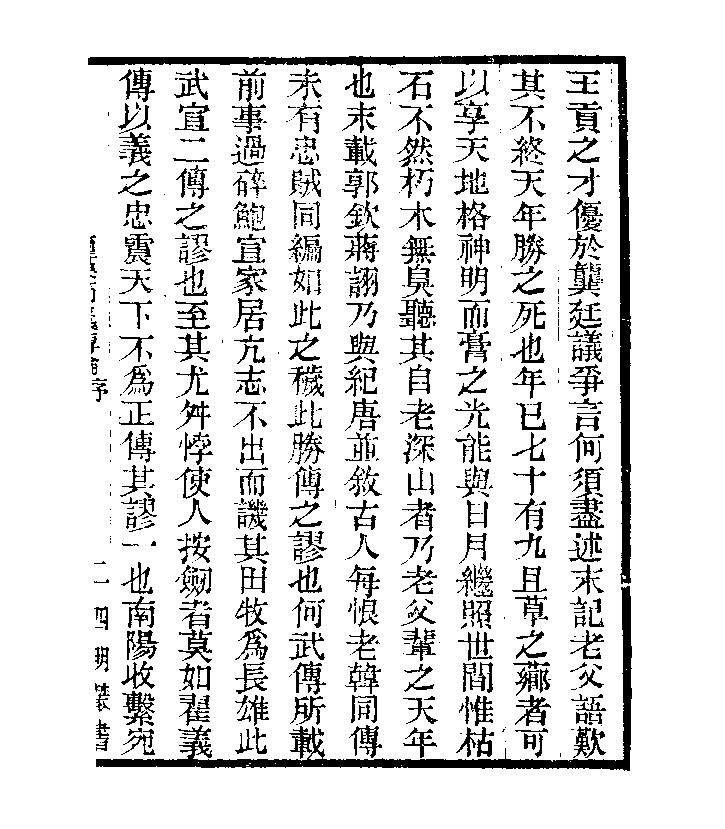 王貢之才優於龔廷議爭言何須盡述末記老父語歎
其不終天年勝之死也年已七十有九且草之薌者可
以享天地格神明而膏之光能與日月繼照世間惟枯
石不然朽木無臭聽其自老深山者乃老父輩之天年
也末載郭欽蔣詡乃與紀唐並敘古人每恨老韓同傳
未有忠賊同編如此之穢此勝傳之謬也何武傳所載
前事過碎鮑宣家居亢志不出而譏其田牧為長雄此
武宣二傳之謬也至其尤舛悖使人按劒者莫如翟義
傳以義之忠震天下不為正傳其謬一也南陽收繫宛
序
二 四明叢書